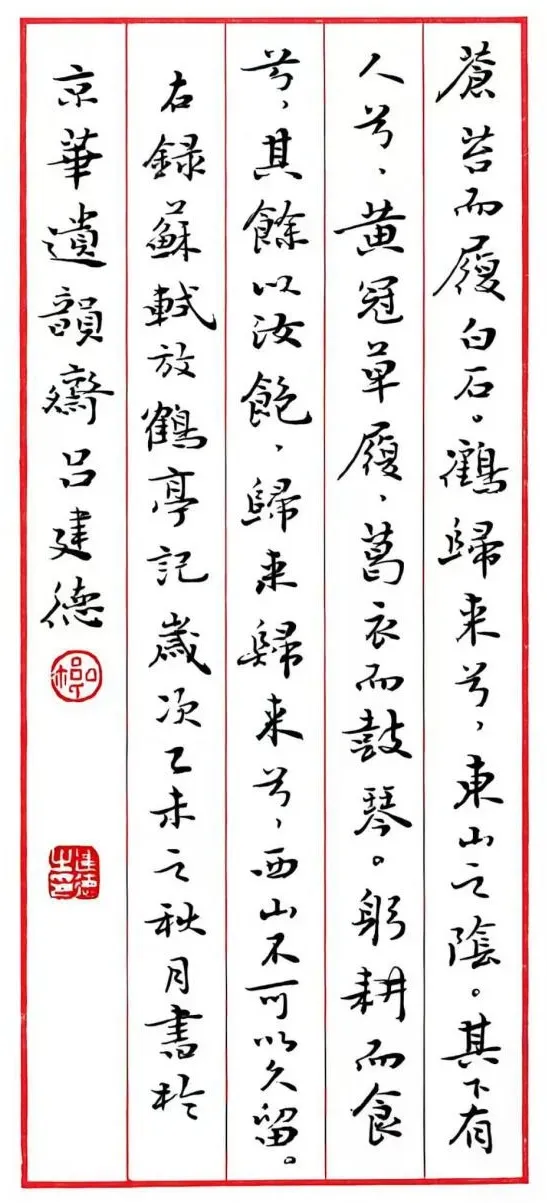 蒼苔而履白石。鶴歸来兮，東山之陰。其下有
人兮，黃冠草履，葛衣而鼓琴。躬耕而食
兮，其餘以汝飽，歸来歸来兮，西山不可以久留。
右録蘇軾放鶴亭記歲次乙未之秋月書於
京華遺韻齋吕建德
吕
建德
之印